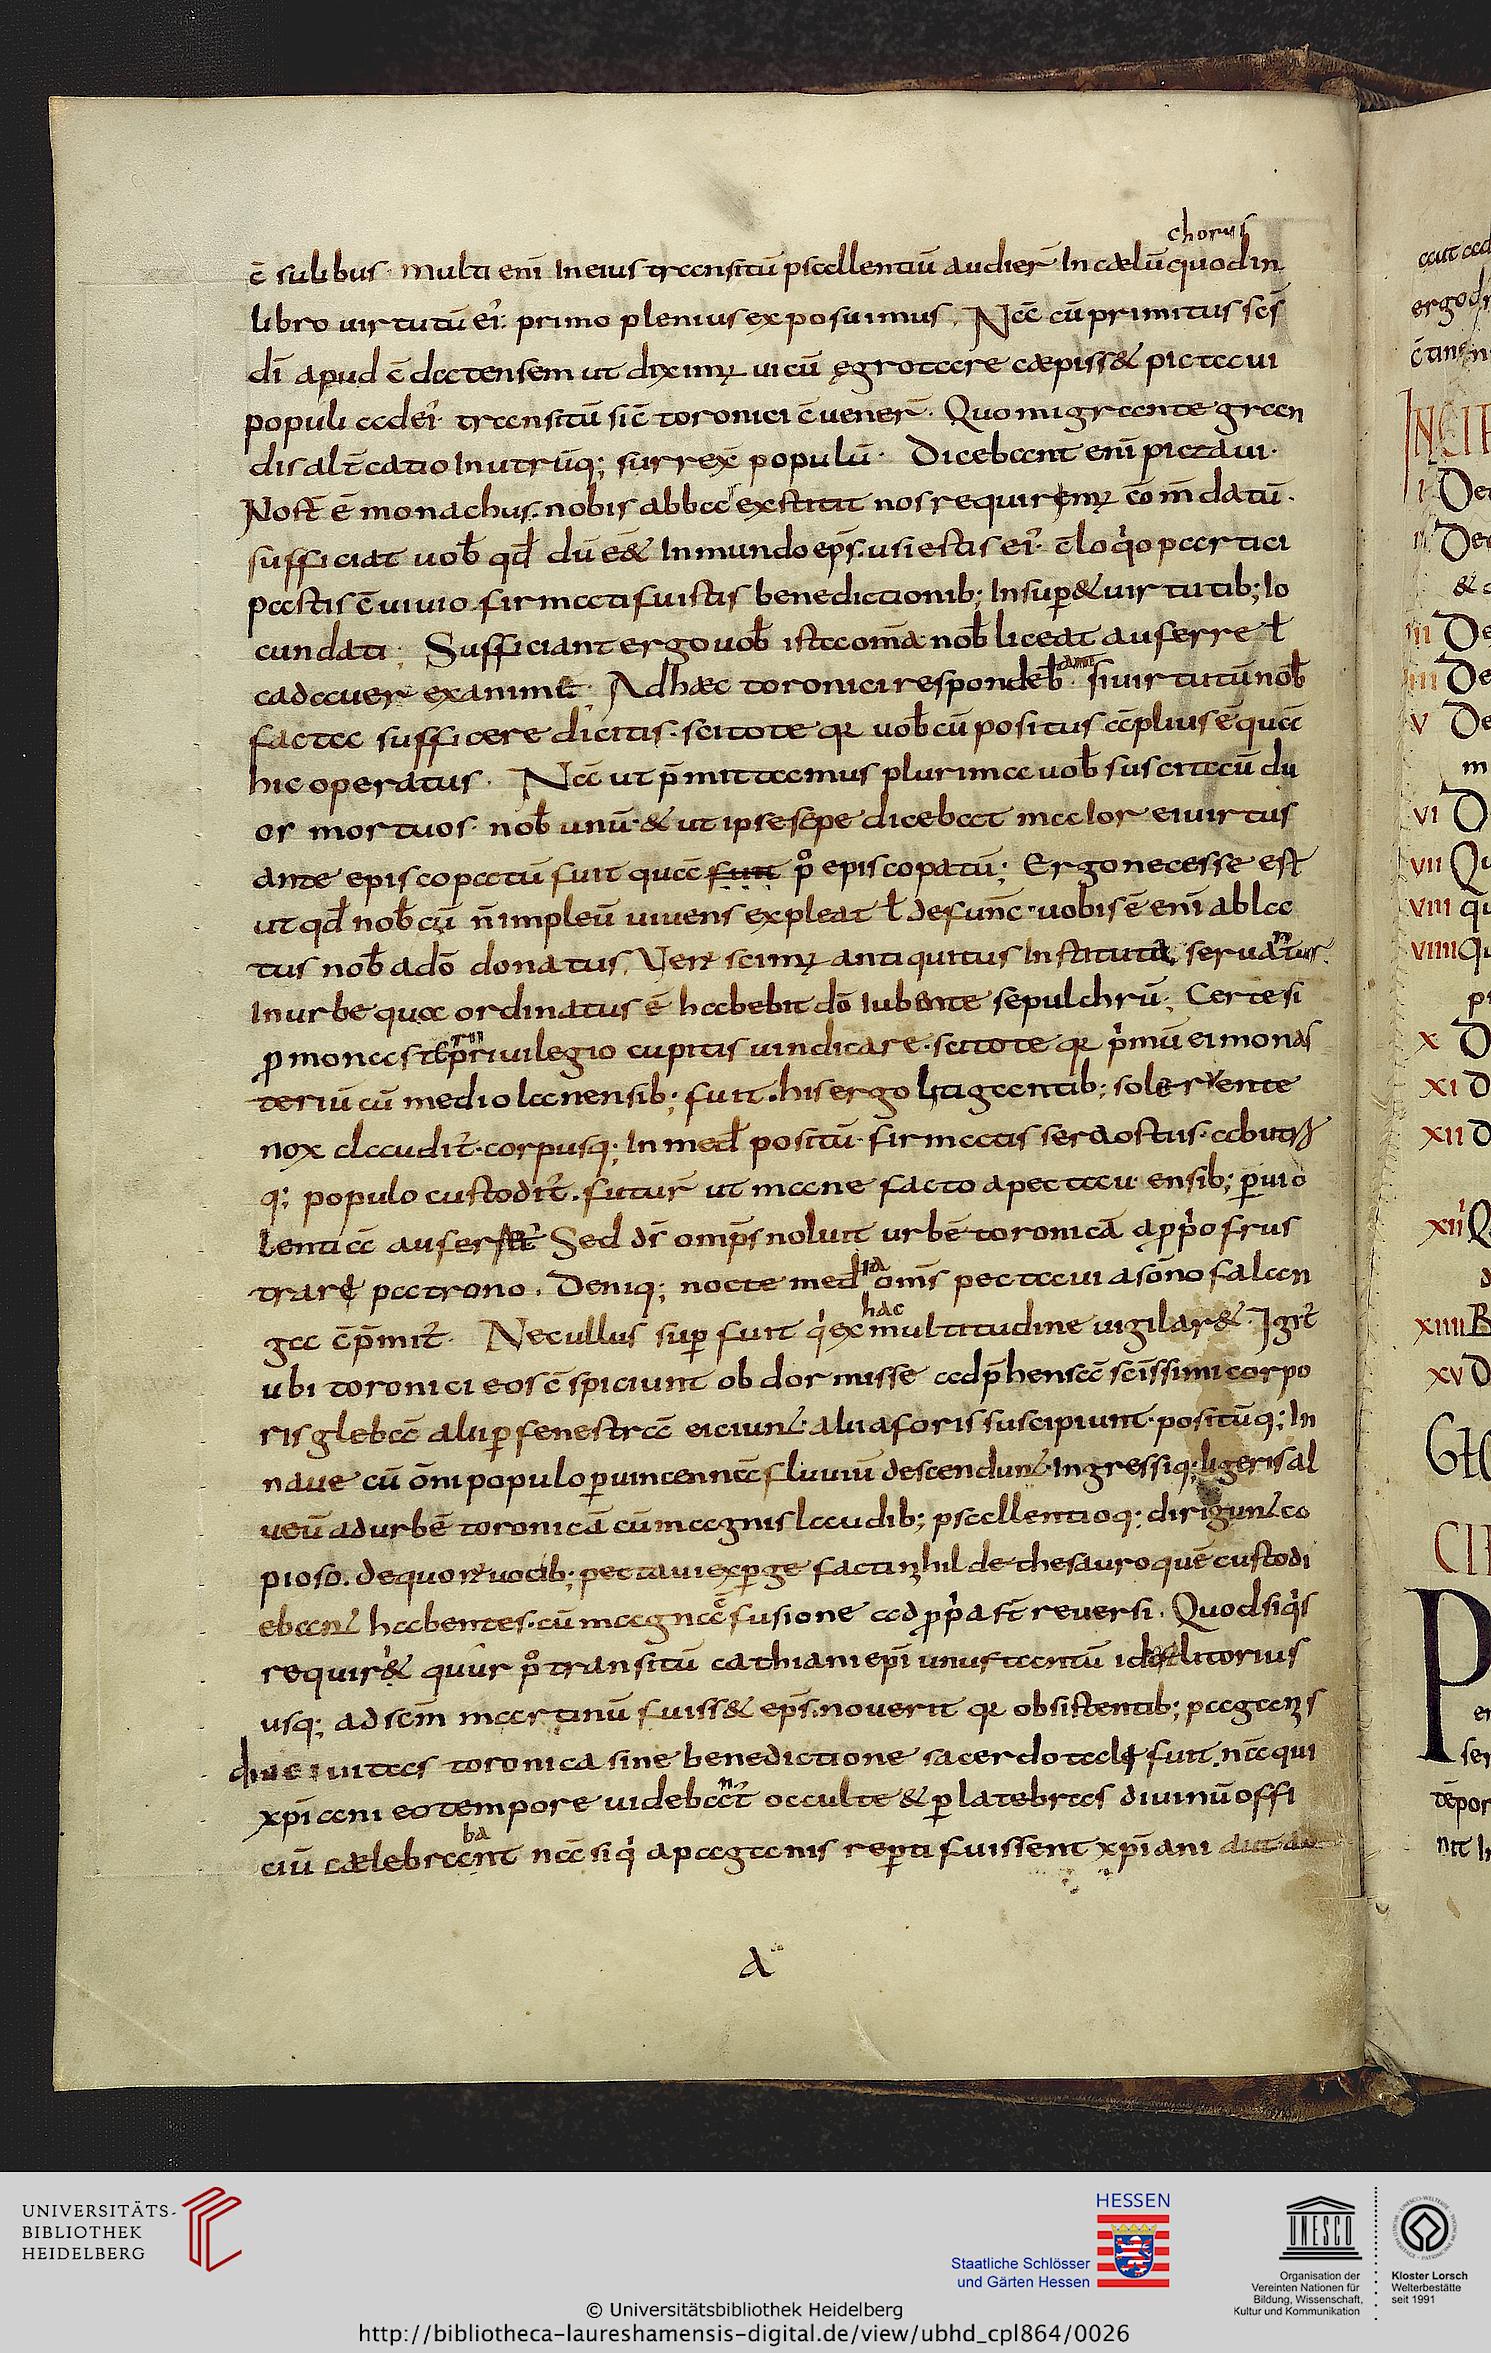 chorus
c̄ sulibus · multi enī In eius transitū psallentiū audier̄ In cælū quod in
libro uirtutū ei᾿ primo plenius exposuimus. Nā cū primitus sc̄s
dī apud c̄datensem ut diximꝰ uicū ęgrotare cæpiss& pictaui
populi ad ei᾿ transitū sic̄ toronici c̄uener̄. Quo migrante gran
dis alt̄catio In utrūq; surrex̄ populū · Dicebant enī pictaui ·
Nost̄ ē monachus · nobis abba exstitit nos requirimꝰ c̄om̄datū ·
sufficiat uob̄ qd̄ dū e& In mundo ep̄s · usi estis ei᾿ c̄loq̇o particip
pastis c̄uiuio firmati fuistis benedictionib; Insup̄ & uirtutib; Io
cundati; Sufficiant ergo uob̄ ista om̄a nob̄ liceat auferre ł
cadauer exanimū · Ad hæc toronici respondeb̄ant · si uirtutū nob̄
facta sufficere dicitis · scitote qꝛ uob̄cū positus āplius ē quā
hic operatus · Nā ut p̄mittamus plurima uob̄ suscitauit du
os mortuos · nob̄ unū · & ut ipse sępe dicebat maior ei uirtus
ante episcopatū fuit quā fuit p̊ episcopatū; Ergo necesse est
ut qd̄ nob̄cū n̄ impleū uiuens expleat ł defunc̄ · uobis ē enī abla
tus nob̄ a dō donatus. Ver̄ si mꝰ antiquitus Instituta seruantur
In urbe qua ordinatus ē habebit dō Iubente sepulchrū; Certe si
ꝓ monasterii priuilegio cupitis uindicare · scitote qꝛ p̄mū ei monas
teriū cū mediolanensib; fuit · his ergo litigantib; sole ruente
nox claudit̄ · corpusq; In med̄ positū · firmatis sera ostiis · ab utrisꝗ
q; populo custodit̄ · futur̄ ut mane facto a pectauensib; ꝑ uio
lentiā auferret̄ Sed ds̄ omp̄s noluit urbē toronicā a ꝓp̄o frus
trari patrono · Deniq; nocte media om̄s pectaui a som̄no falan
ga c̄p̄mit̄ · Nec ullus sup̄ fuit q̇ ex hac multitudine uigilar& · Igit̄
ubi toronici eos c̄spiciunt obdormisse adp̄hensā sc̄issimi corpo
ris glebā alii ꝑ fenestrā eiciunt · alii a foris suscipiunt · positūq; In
naue cū om̄i populo ꝑ uincennā fluuiū descendunt · Ingressiq; ligeris al
ueū ad urbē toronicā cū magnis laudib; psallentioq; dirigunt co
pioso · de quor̄ uocib; pectaui exꝑgefacti nihil de thesauro quē custodi
ebant habentes · cū magna c̄fusione ad ꝓp̄a st̄ reuersi · Quod si q̇s
requir& quur p̊ transitū cathiani ep̄i unus tantū id ē litorius
usq; ad sc̄m martinū fuiss& ep̄s · nouerit qꝛ obsistentib; paganis
diu ciuitas toronica sine benedictione sacerdotali fuit. nā qui
xp̄iani eo tempore uidebant̄ occulte & ꝑ latebras diuinū offi
ciū cælebrabant nā si q̇ a paganis reꝑti fuissent xp̄iani aut
a
UNIVERSITÄTS-
BIBLIOTHEK
HEIDELBERG
HESSEN
Staatliche Schlösser
und Gärten Hessen
UNESCO
Organisation der
Vereinten Nationen für
Bildung, Wissenschaft,
Kultur und Kommunikation
Kloster Lorsch
Welterbestätte
seit 1991
© Universitätsbibliothek Heidelberg
http://bibliotheca-laureshamensis-digital.de/view/ubhd_cpl864/0026